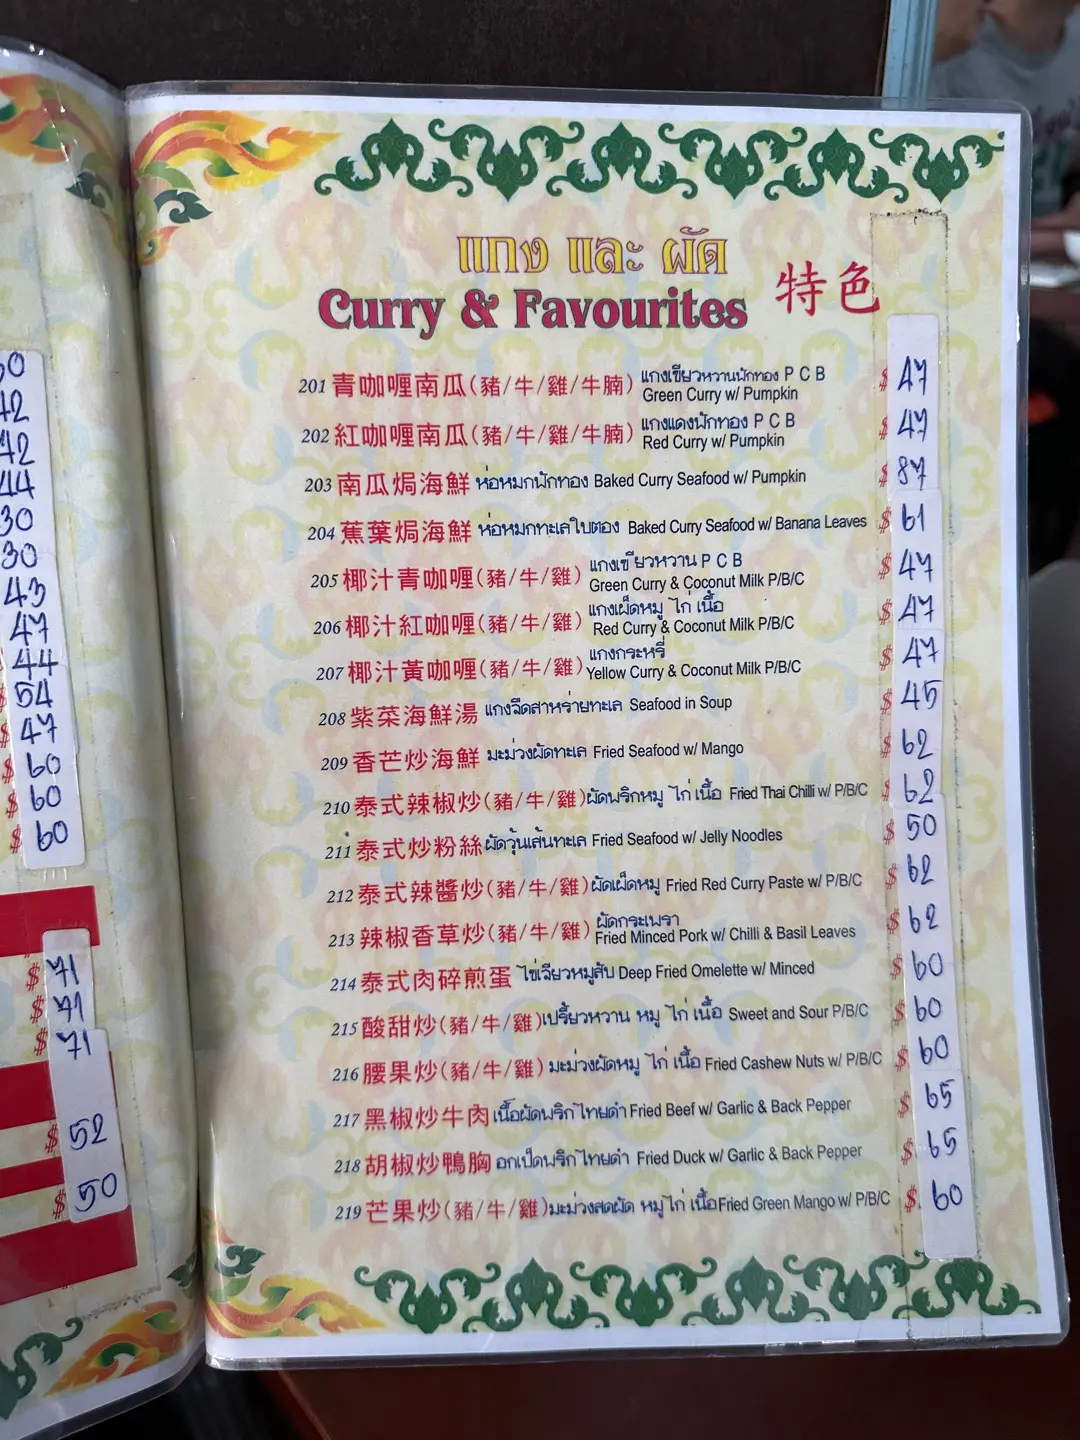 42
42
44
30
30
43
47
44
$ 54
$ 47
$ 60
$ 60
$ 60
$ 71
$ 71
$ 71
$ 52
$ 50
แกง และ ผัด
Curry & Favourites 特色
201 青咖喱南瓜(豬/牛/雞/牛腩) แกงเขียวหวานฟักทอง P C B $ 47
Green Curry w/ Pumpkin
202 紅咖喱南瓜(豬/牛/雞/牛腩) แกงแดงฟักทอง P C B $ 47
Red Curry w/ Pumpkin
203 南瓜焗海鮮 ห่อหมกฟักทอง Baked Curry Seafood w/ Pumpkin $ 87
204 蕉葉焗海鮮 ห่อหมกทะเลใบตอง Baked Curry Seafood w/ Banana Leaves $ 61
205 椰汁青咖喱(豬/牛/雞) แกงเขียวหวาน P C B $ 47
Green Curry & Coconut Milk P/B/C
206 椰汁紅咖喱(豬/牛/雞) แกงเผ็ดหมู ไก่ เนื้อ $ 47
Red Curry & Coconut Milk P/B/C
207 椰汁黃咖喱(豬/牛/雞) แกงกะหรี่ $ 47
Yellow Curry & Coconut Milk P/B/C
208 紫菜海鮮湯 แกงจืดสาหร่ายทะเล Seafood in Soup $ 45
209 香芒炒海鮮 มะม่วงผัดทะเล Fried Seafood w/ Mango $ 62
210 泰式辣椒炒(豬/牛/雞) ผัดพริกหมู ไก่ เนื้อ Fried Thai Chilli w/ P/B/C $ 62
211 泰式炒粉絲 ผัดวุ้นเส้นทะเล Fried Seafood w/ Jelly Noodles $ 50
212 泰式辣醬炒(豬/牛/雞) ผัดเผ็ดหมู Fried Red Curry Paste w/ P/B/C $ 62
213 辣椒香草炒(豬/牛/雞) ผัดกระเพรา $ 62
Fried Minced Pork w/ Chilli & Basil Leaves
214 泰式肉碎煎蛋 ไข่เจียวหมูสับ Deep Fried Omelette w/ Minced $ 60
215 酸甜炒(豬/牛/雞) เปรี้ยวหวาน หมู ไก่ เนื้อ Sweet and Sour P/B/C $ 60
216 腰果炒(豬/牛/雞) มะม่วงผัดหมู ไก่ เนื้อ Fried Cashew Nuts w/ P/B/C $ 60
217 黑椒炒牛肉 เนื้อผัดพริกไทยดำ Fried Beef w/ Garlic & Back Pepper $ 65
218 胡椒炒鴨胸 อกเป็ดพริกไทยดำ Fried Duck w/ Garlic & Back Pepper $ 65
219 芒果炒(豬/牛/雞) มะม่วงสดผัด หมู ไก่ เนื้อ Fried Green Mango w/ P/B/C $ 60